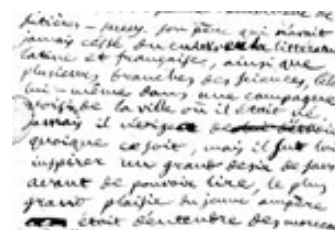 jamais cessé de cultiver la littérature
latine et française, ainsi que
plusieurs branches des sciences, l'éle
lui-même dans une campagne
voisine de la ville où il était né.
Jamais il n'exigea de
quoique ce soit, mais il sut lui
inspirer un grand désir de savoir
avant de pouvoir lire, le plus
grand plaisir du jeune ampère
était d'entendre des morceau